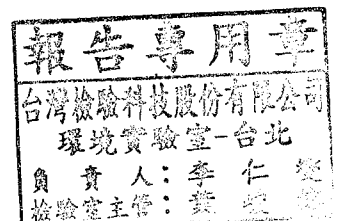 報告專用章
台灣檢驗科技股份有限公司
環境實驗室-台北
負責人:李仁
檢驗室主管:黃